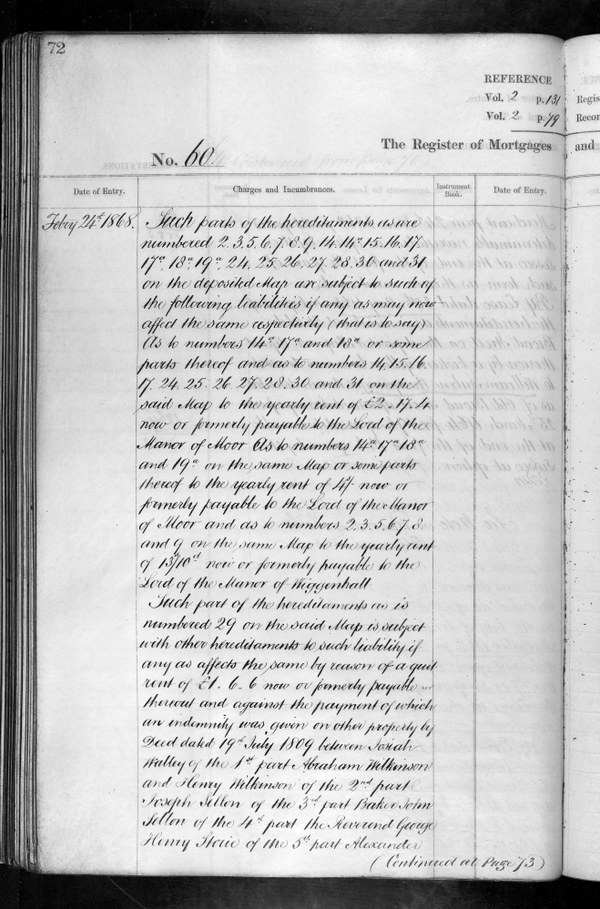 72
REFERENCE
Vol. 2 p. 131
Vol. 2 p. 79
Regis
Recor
No. 60.
The Register of Mortgages
and
Date of Entry.
Charges and Incumbrances.
Instrument Book.
Date of Entry.
Feby 24th 1868.
Such parts of the hereditaments as are
numbered 2. 3. 5. 6. 7. 8. 9. 14. 14a 15. 16. 17.
17a 18a 19a 24. 25. 26. 27. 28. 30 and 31
on the deposited Map are subject to such of
the following liabilities if any as may now
affect the same respectively (that is to say)
As to numbers 14a 17a and 18a or some
parts thereof and as to numbers 14. 15. 16.
17. 24. 25. 26. 27. 28. 30 and 31 on the
said Map to the yearly rent of £2. 17. 4
now or formerly payable to the Lord of the
Manor of Moor As to numbers 14a 17a 18a
and 19a on the same Map or some parts
thereof to the yearly rent of 4/ now or
formerly payable to the Lord of the Manor
of Moor and as to numbers 2. 3. 5. 6. 7. 8
and 9 on the same Map to the yearly rent
of 13/10d now or formerly payable to the
Lord of the Manor of Wiggenhall
Such part of the hereditaments as is
numbered 29 on the said Map is subject
with other hereditaments to such liability if
any as affects the same by reason of a quit
rent of £1. 6. 6 now or formerly payable
thereout and against the payment of which
an indemnity was given on other property by
Deed dated 19th July 1809 between Josiah
Watley of the 1st part Abraham Wilkinson
and Henry Wilkinson of the 2nd part
Joseph Sellon of the 3rd part Baker John
Sellon of the 4th part the Reverend George
Henry Storie of the 5th part Alexander
(Continued at Page 73)